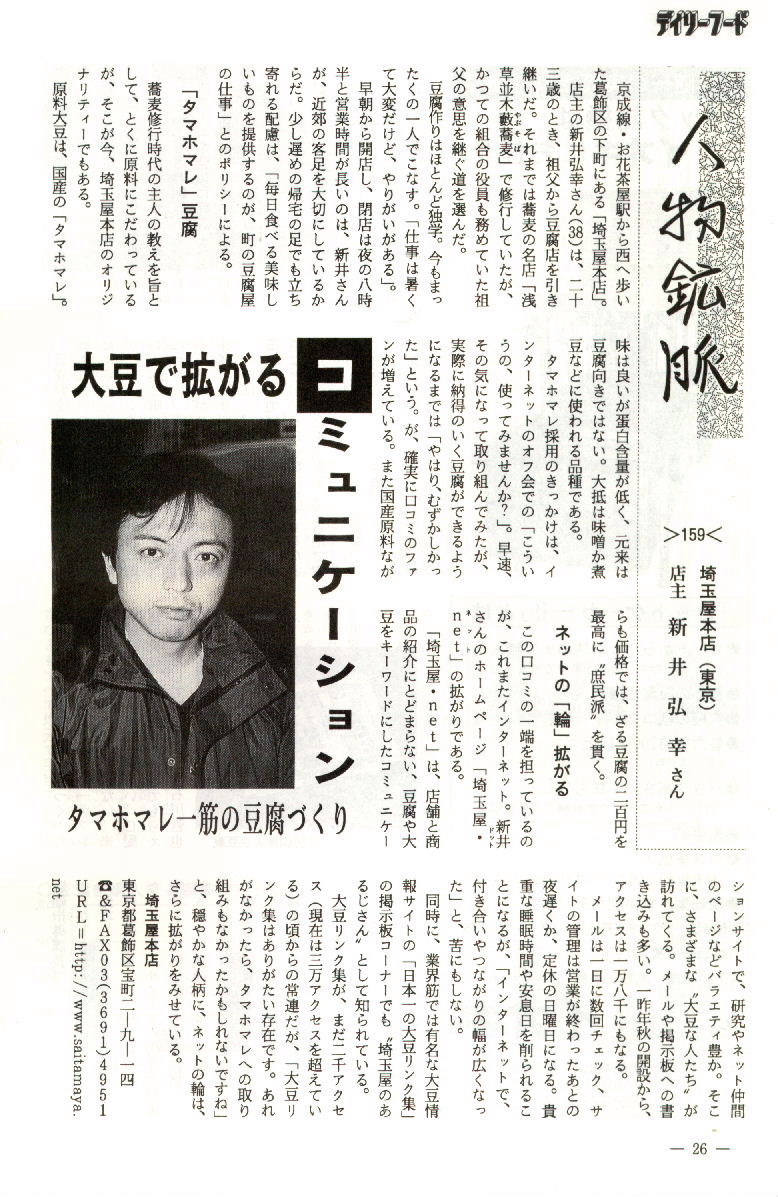 デイリーフード
人物鉱脈
>159<
埼玉屋本店(東京)
店主 新井弘幸さん
京成線・お花茶屋駅から西へ歩い
た葛飾区の下町にある「埼玉屋本店」。
店主の新井弘幸さん(38)は、二十
三歳のとき、祖父から豆腐店を引き
継いだ。それまでは蕎麦の名店「浅
草並木藪蕎麦」で修行していたが、
かつての組合の役員も務めていた祖
父の意思を継ぐ道を選んだ。
豆腐作りはほとんど独学。今もまっ
たくの一人でこなす。「仕事は暑く
て大変だけど、やりがいがある」。
早朝から開店し、閉店は夜の八時
半と営業時間が長いのは、新井さん
が、近郊の客足を大切にしているか
らだ。少し遅めの帰宅の足でも立ち
寄れる配慮は、「毎日食べる美味し
いものを提供するのが、町の豆腐屋
の仕事」とのポリシーによる。
「タマホマレ」豆腐
蕎麦修行時代の主人の教えを旨と
して、とくに原料にこだわっている
が、そこが今、埼玉屋本店のオリジ
ナリティーでもある。
原料大豆は、国産の「タマホマレ」。
味は良いが蛋白含量が低く、元来は
豆腐向きではない。大抵は味噌か煮
豆などに使われる品種である。
タマホマレ採用のきっかけは、イ
ンターネットのオフ会での「こうい
うの、使ってみませんか?」。早速、
その気になって取り組んでみたが、
実際に納得のいく豆腐ができるよう
になるまでは「やはり、むずかしかっ
た」という。が、確実に口コミのファ
ンが増えている。また国産原料なが
大豆で拡がる
コミュニケーション
タマホマレ一筋の豆腐づくり
らも価格では、ざる豆腐の二百円を
最高に〝庶民派〟を貫く。
ネットの「輪」拡がる
この口コミの一端を担っているの
が、これまたインターネット。新井
さんのホームページ「埼玉屋・
net」の拡がりである。
「埼玉屋・net」は、店舗と商
品の紹介にとどまらない、豆腐や大
豆をキーワードにしたコミュニケー
ションサイトで、研究やネット仲間
のページなどバラエティ豊か。そこ
に、さまざまな〝大豆な人たち〟が
訪れてくる。メールや掲示板への書
き込みも多い。一昨年秋の開設から、
アクセスは一万八千にもなる。
メールは一日に数回チェック、サ
イトの管理は営業が終わったあとの
夜遅くか、定休の日曜日になる。貴
重な睡眠時間や安息日を削られるこ
とになるが、「インターネットで、
付き合いやつながりの幅が広くなっ
た」と、苦にもしない。
同時に、業界筋では有名な大豆情
報サイトの「日本一の大豆リンク集」
の掲示板コーナーでも〝埼玉屋のあ
るじさん〟として知られている。
大豆リンク集が、まだ二千アクセ
ス(現在は三万アクセスを超えてい
る)の頃からの常連だが、「大豆リ
ンク集はありがたい存在です。あれ
がなかったら、タマホマレへの取り
組みもなかったかもしれないですね」
と、穏やかな人柄に、ネットの輪は、
さらに拡がりをみせている。
埼玉屋本店
東京都葛飾区宝町二―九―一四
☎&FAX03(3691)4951
URL=http://www.saitamaya.
net
― 26 ―